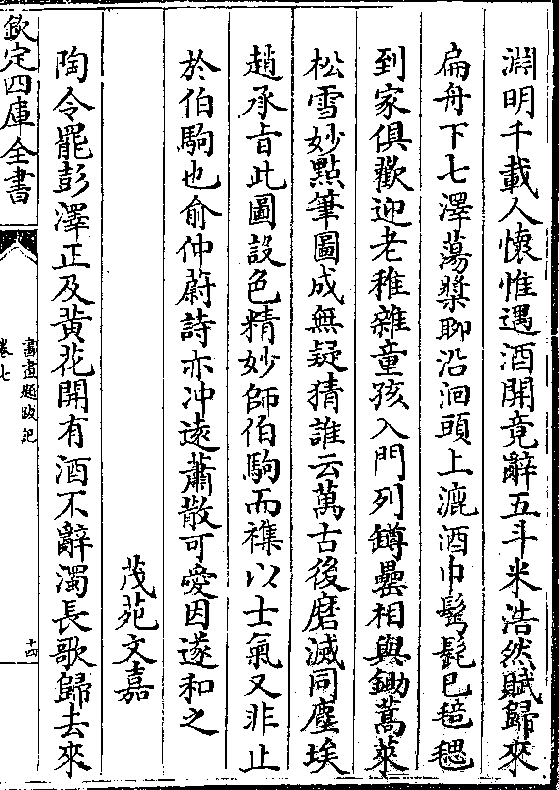 淵明千載人懷惟遇酒開竟辭五斗米浩然賦歸來
扁舟下七澤蕩槳聊沿洄頭上漉酒巾鬅髭已𣯶毸
到家俱歡迎老稚雜童孩入門列罇罍相與鋤蒿萊
松雪妙點筆圖成無疑猜誰云萬古後磨滅同塵埃
趙承旨此圖設色精妙師伯駒而襍以士氣又非止
於伯駒也俞仲蔚詩亦冲遠蕭散可愛因遂和之
茂苑文嘉
陶令罷彭澤正及黃花開有酒不辭濁長歌歸去來
欽定四庫全書
書畫題跋記
卷七
十四